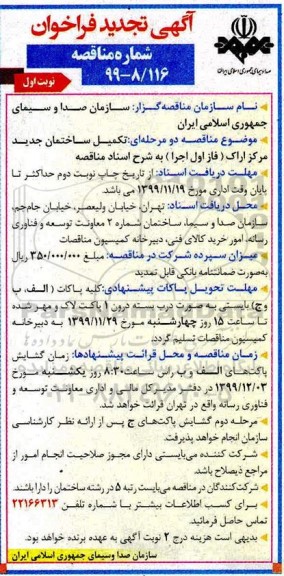 آگهی تجدید فراخوان
شماره مناقصه
۹۹-۸/۱۱۶
نوبت اول
صدا و سیمای جمهوری اسلامی ایران
نام سازمان مناقصه‌گزار: سازمان صدا و سیمای
جمهوری اسلامی ایران
موضوع مناقصه دو مرحله‌ای: تکمیل ساختمان جدید
مرکز اراک ( فاز اول اجرا ) به شرح اسناد مناقصه
مهلت دریافت اسناد: از تاریخ چاپ نوبت دوم حداکثر تا
پایان وقت اداری مورخ ۱۳۹۹/۱۱/۱۹ می باشد.
محل دریافت اسناد: تهران، خیابان ولیعصر، خیابان جام‌جم،
سازمان صدا و سیما، ساختمان شماره ۲ معاونت توسعه و فناوری
رسانه، امور خرید کالای فنی، دبیرخانه کمیسیون مناقصات
میزان سپرده شرکت در مناقصه: مبلغ ۳۵۰/۰۰۰/۰۰۰ ریال
به‌صورت ضمانتنامه بانکی قابل تمدید
مهلت تحویل پاکات پیشنهادی: کلیه پاکات ( الف، ب
و ج) بایستی به صورت درب بسته درون ۱ پاکت لاک و مهر شده
تا ساعت ۱۵ روز چهارشنبه مورخ ۱۳۹۹/۱۱/۲۹ به دبیرخانه
کمیسیون مناقصات تسلیم گردد
زمان مناقصه و محل قرائت پیشنهادها: زمان گشایش
پاکت‌های الف و ب راس ساعت ۸:۳۰ روز یکشنبه مورخ
۱۳۹۹/۱۲/۰۳ در دفتر مدیرکل مالی و اداری معاونت توسعه و
فناوری رسانه واقع در تهران قرائت خواهد شد.
مرحله دوم گشایش پاکت‌های ج پس از ارائه نظر کارشناسی
سازمان انجام خواهد پذیرفت.
شرکت کننده می‌بایستی دارای مجوز صلاحیت انجام امور از
مراجع ذیصلاح باشد.
شرکت‌کنندگان در مناقصه می‌بایست رتبه ۵ در رشته ساختمان را دارا باشند.
برای کسب اطلاعات بیشتر با شماره تلفن ۲۲۱۶۶۳۱۳
تماس حاصل فرمائید.
بدیهی است هزینه درج ۲ نوبت آگهی به عهده برنده خواهد بود.
سازمان صدا وسیمای جمهوری اسلامی ایران